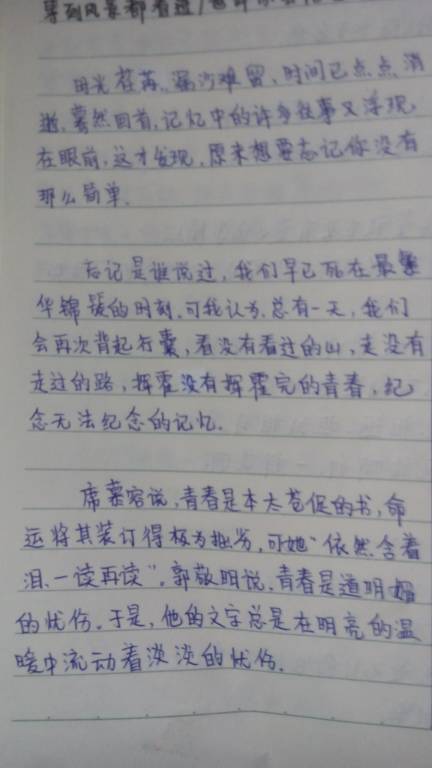 等到风景都看透
时光荏苒,漏沙难留,时间已点点消
逝,蓦然回首,记忆中的许多往事又浮现
在眼前,这才发现,原来想要忘记你没有
那么简单.
忘记是谁说过,我们早已死在最繁
华锦簇的时刻,可我认为,总有一天,我们
会再次背起行囊,看没有看过的山,走没有
走过的路,挥霍没有挥霍完的青春,纪
念无法纪念的记忆.
席慕容说,青春是本太苍促的书,命
运将其装订得极为拙劣,可她"依然含着
泪,一读再读",郭敬明说,青春是道明媚
的忧伤.于是,他的文字总是在明亮的温
暖中流动着淡淡的忧伤.